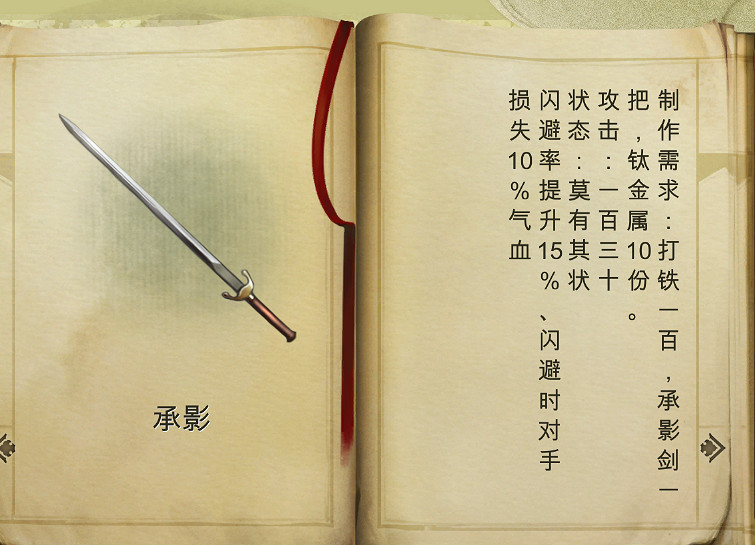 承影
制作需求：打铁一百，承影剑一
把，钛金属10份。
攻击：一百三十
状态：莫有其状
闪避率提升15%、闪避时对手
损失10%气血